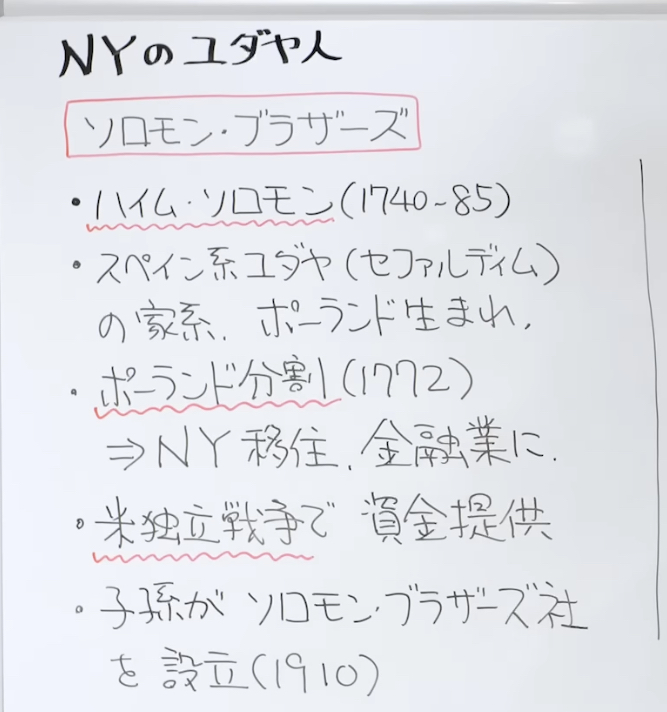 NYのユダヤ人
ソロモン・ブラザーズ
・ハイム・ソロモン(1740~85)
・スペイン系ユダヤ(セファルディム)
の家系．ポーランド生まれ．
・ポーランド分割(1772)
⇒NY移住．金融業に．
・米独立戦争で 資金提供
・子孫が ソロモン・ブラザーズ社
を 設立(1910)